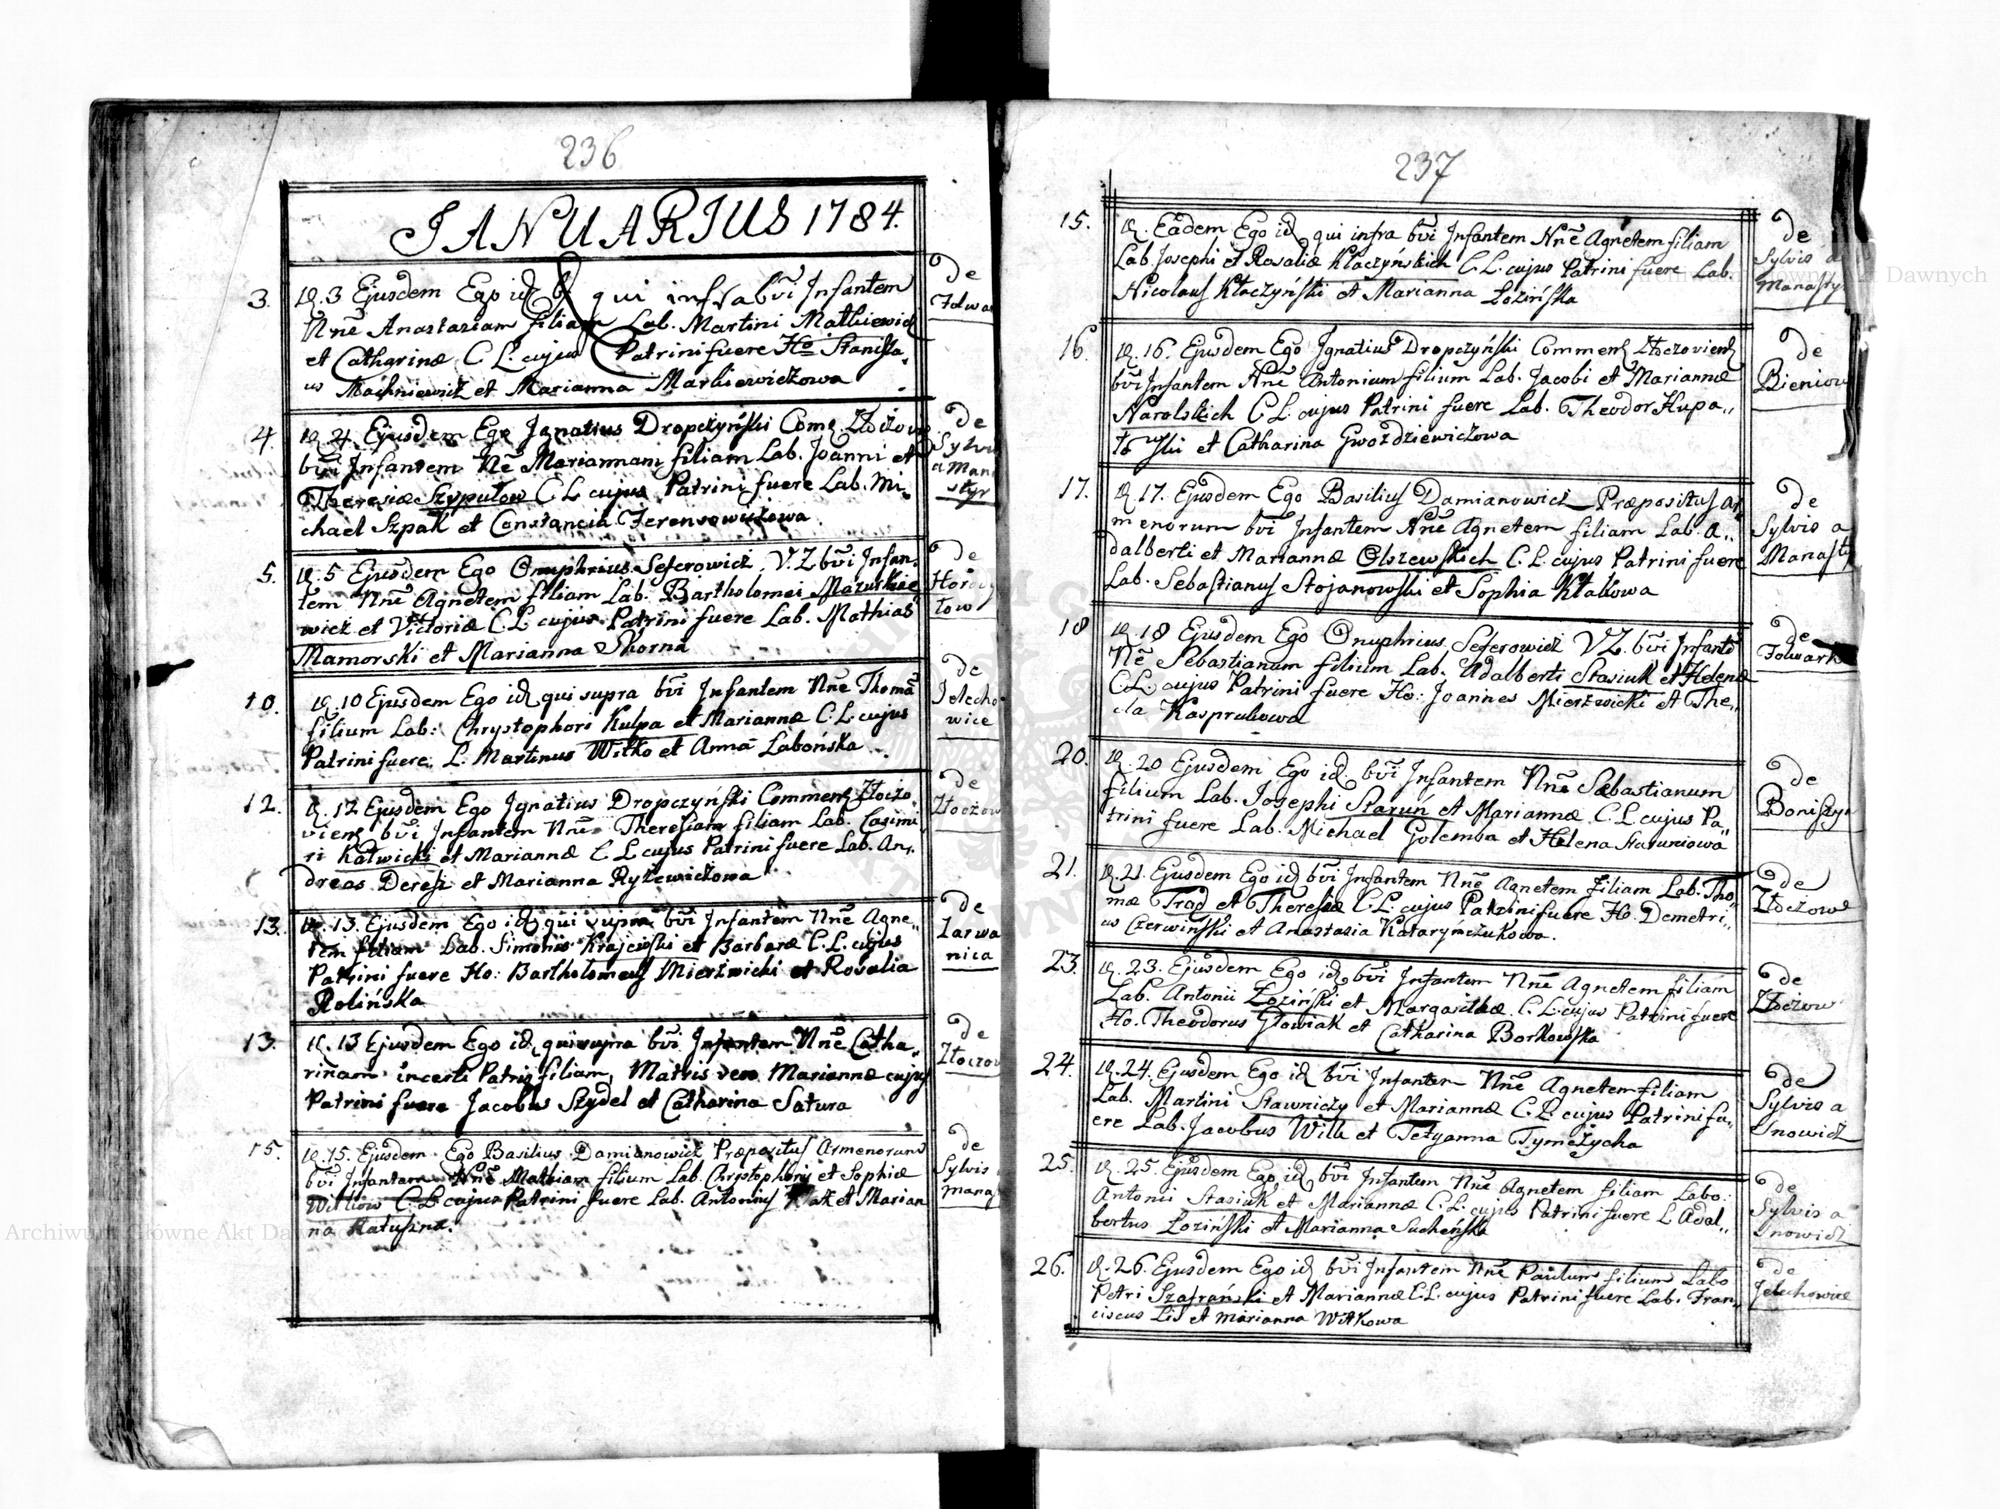 236
IANUARIUS 1784.
3. D. 3 Ejusdem Ego id qui infra bvi Infantem
Nne Anastasiam filiam Lab. Martini Matkiewicz
et Catharinæ C. L. cujus Patrini fuere Ho Stanisla-
us Machniewicz et Marianna Markiewiczowa
de
Folwar
4. D. 4. Ejusdem Ego Ignatius Dropczyński Com. Złoczow
bvi Infantem Nne Mariannam filiam Lab. Joanni et
Theresiæ Szypułow C. L. cujus Patrini fuere Lab. Mi-
chael Szpak et Constancia Ferensowiczowa
de
Sylvis
a Mana
styr
5. D. 5 Ejusdem Ego Onuphrius Seferowicz V. Z bvi Infan-
tem Nne Agnetem filiam Lab. Bartholomei Mazurkie
wicz et Victoriæ C. L. cujus Patrini fuere Lab. Mathias
Mamorski et Marianna Skorna
de
Horody
łow
10. D. 10 Ejusdem Ego id qui supra bvi Infantem Nne Thomā
filium Lab: Chrystophori Kulpa et Mariannæ C. L. cujus
Patrini fuere L. Martinus Witko et Anna Labońska
de
Jelecho
wice
12. D. 12 Ejusdem Ego Ignatius Dropczyński Commen Złoczo
vien bvi Infantem Nne Theresiam filiam Lab. Casimi
ri Kałwicki et Mariannæ C. L. cujus Patrini fuere Lab. An-
dreas Deresz et Marianna Ryżewiczowa
de
Złoczow
13. D. 13. Ejusdem Ego id qui supra bvi Infantem Nne Agne-
tem filiam Lab. Simonis Krajewski et Barbaræ C. L. cujus
Patrini fuere Ho: Bartholomeus Mierzwicki et Rosalia
Rolińska
de
Zarwa
nica
13. D. 13 Ejusdem Ego id qui supra bvi Infantem Nne Catha-
rinam incerti Patris filiam, Matris vero Mariannæ cujus
Patrini fuere Jacobus Szydeł et Catharina Satura
de
Złoczow
15. D. 15. Ejusdem Ego Basilius Damianowicz Præpositus Armenorum
bvi Infantem Nne Mathiam filium Lab. Chrystophory et Sophiæ
Witkow C. L. cujus Patrini fuere Lab. Antonius et Marian
na Katuszna.
de
Sylvis
manas
237
15. D. Eadem Ego id qui infra bvi Infantem Nne Agnetem filiam
Lab. Josephi et Rosaliæ Kłaczynskich C. L. cujus Patrini fuere Lab.
Nicolaus Kłaczyński et Marianna Łozińska
de
Sylvis a
Manasty
16. D. 16. Ejusdem Ego Ignatius Dropczyński Commen Złoczovien
bvi Infantem Nne Antonium filium Lab. Jacobi et Mariannæ
Narolskich C. L. cujus Patrini fuere Lab. Theodor Kupa-
towski et Catharina Gwoździewiczowa
de
Bieniow
17. D. 17. Ejusdem Ego Basilius Damianowicz Præpositus ar
menorum bvi Infantem Nne Agnetem filiam Lab. A-
dalberti et Mariannæ Olszewskich C. L. cujus Patrini fuere
Lab. Sebastianus Stojanowski et Sophia Kłakowa
de
Sylvis a
Manasty
18 D. 18 Ejusdem Ego Onuphrius Seferowicz V Z. bvi Infantē
Nē Sebastianum filium Lab. Adalberti Stasiuk et Helenæ
C. L. cujus Patrini fuere Ho: Joannes Mierzwicki et The-
cla Kasprukowa
de
Folwark
20. D. 20 Ejusdem Ego id bvi Infantem Nne Sebastianum
filium Lab. Josephi Starun et Mariannæ C. L. cujus Pa-
trini fuere Lab. Michael Golemba et Helena Staruniowa
de
Boniszyn
21. D. 21. Ejusdem Ego id bvi Infantem Nne Agnetem filiam Lab. Tho-
mæ Trad et Theresiæ C. L. cujus Patrini fuere Ho. Demetri-
us Czerwiński et Anastasia Katarynczukowa.
de
Złoczow
23. D. 23. Ejusdem Ego id bvi Infantem Nne Agnetem filiam
Lab. Antonii Łoziński et Margarithæ C. L. cujus Patrini fuere
Ho. Theodorus Głowiak et Catharina Borkowska
de
Złoczow
24. D. 24. Ejusdem Ego id bvi Infantem Nne Agnetem filiam
Lab. Martini Stawniczy et Mariannæ C. L. cujus Patrini fu-
ere Lab. Jacobus Wilk et Tetyanna Tymczycha
de
Sylvis a
Snowicz
25. D. 25. Ejusdem Ego id bvi Infantem Nne Agnetem filiam Labo.
Antonii Stasiuk et Mariannæ C. L. cujus Patrini fuere L. Adal-
bertus Łoziński et Marianna Sucheńska
de
Sylvis a
Snowicz
26. D. 26. Ejusdem Ego id bvi Infantem Nne Paulum filium Labo
Petri Szafrański et Mariannæ C. L. cujus Patrini fuere Lab. Fran-
ciscus Lis et Marianna Witkowa
de
Jelechowice
Archiwum Główne Akt Dawnych
Archiwum Główne Akt Dawnych